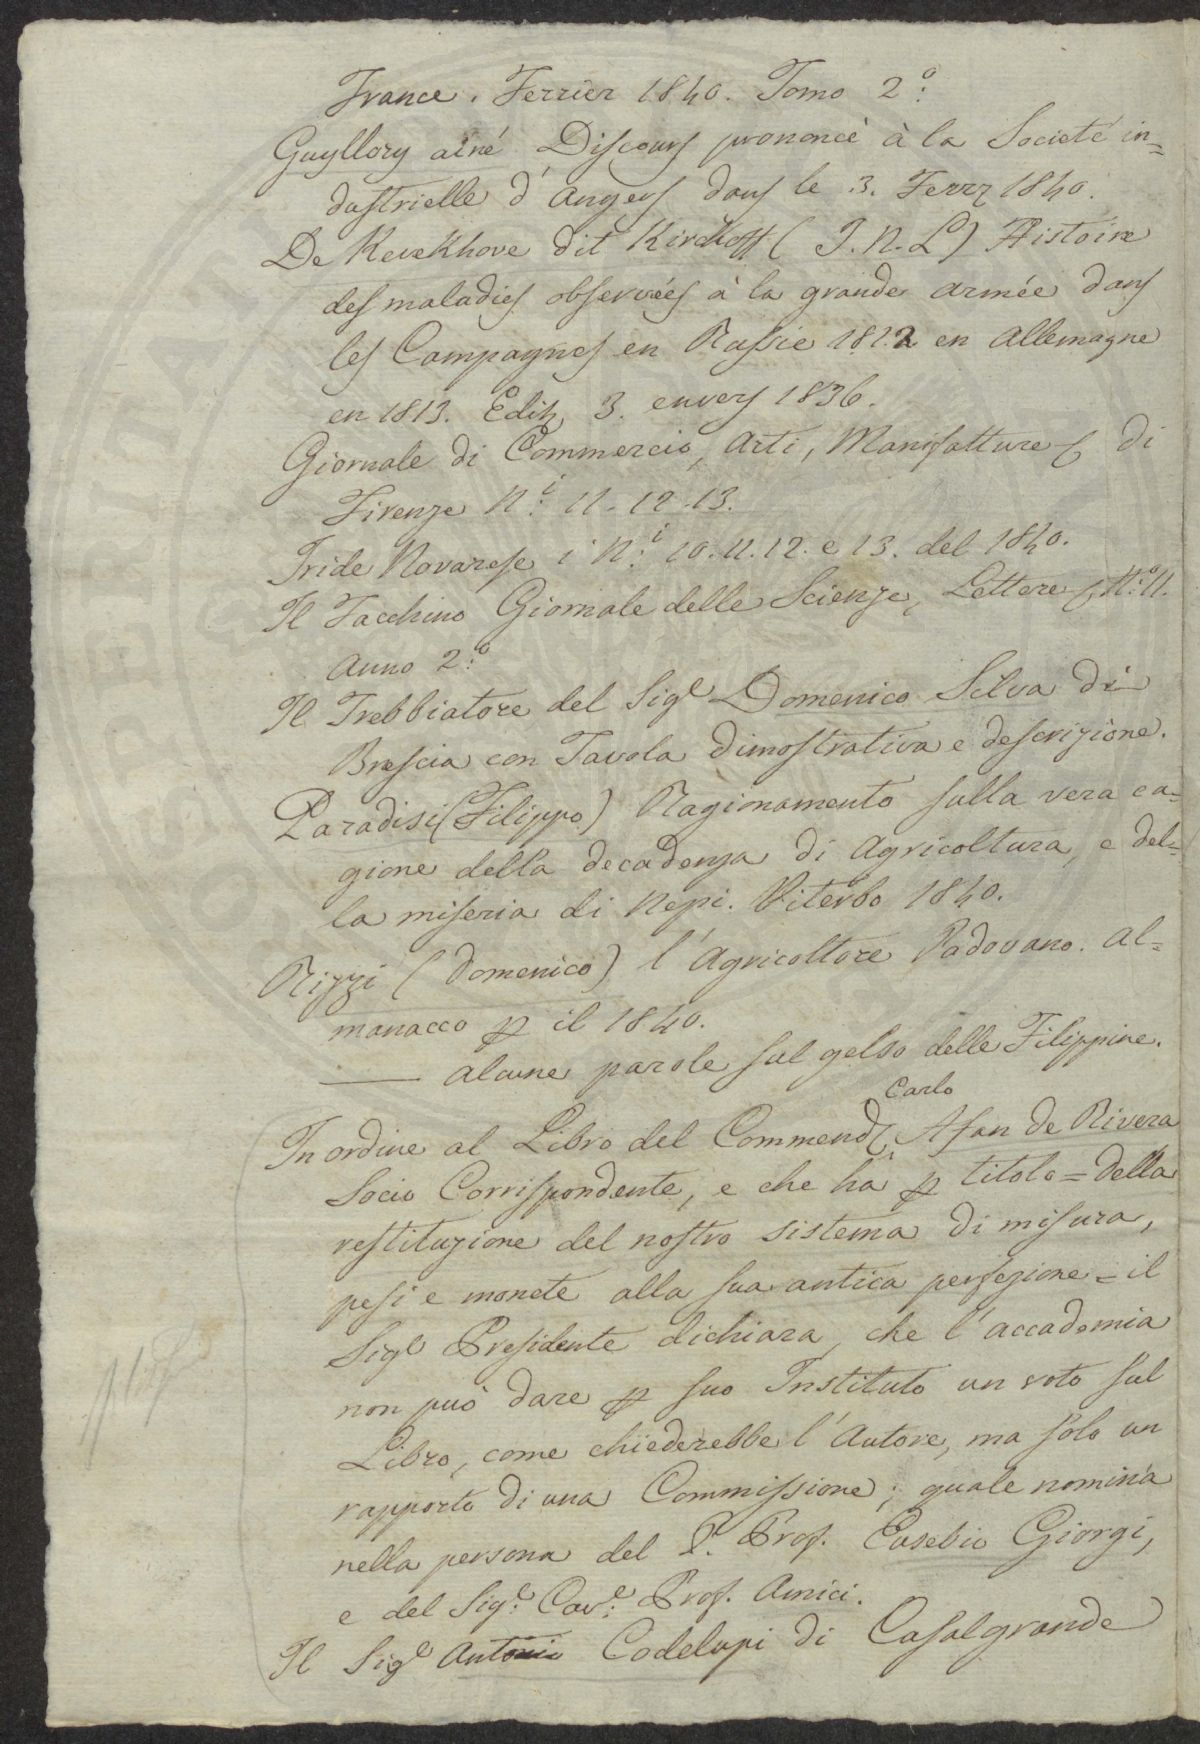 France. Ferrier 1840. Tomo 2.º
Guyllory ainé Discours prononcè à la Societé in=
dustrielle d'Angers dans le 3. Ferrr 1840.
De Kerekhove dit Kirckoff (J. N. L) Histoire
des maladies observées à la grande armée dans
les Campagnes en Russie 1812 en Allemagne
en 1813. Ediz. 3. envers 1836.
Giornale di Commercio, Arti, Manifatture di
Firenze N.i 11. 12. 13.
Iride Novarese i N.i 10. 11. 12. e 13. del 1840.
Il Facchino Giornale delle Scienze, Lettere N.º 11.
Anno 2.º
Il Trebbiatore del Sige Domenico Silva di
Brescia con Tavola dimostrativa e descrizione.
Paradisi (Filippo) Ragionamento sulla vera ca=
gione della decadenza di Agricoltura, e del=
la miseria di Nepi. Viterbo 1840.
Rizzi (Domenico) l'Agricoltore Padovano. Al=
manacco p il 1840.
—— alcune parole sul gelso delle Filippine.
Carlo
In ordine al Libro del Commend Afan de Rivera
Socio Corrispondente, e che ha p titolo = della
restituzione del nostro sistema di misura,
pesi e monete alla sua antica perfezione = il
Sige Presidente dichiara, che l'accademia
non può dare p suo Instituto un voto sul
Libro, come chiederebbe l'Autore, ma solo un
rapporto di una Commissione; quale nomina
nella persona del P. Prof. Eusebio Giorgi,
e del Sig.e Cav.e Prof. Amici.
Il Sige Antonio Codelupi di Casalgrande